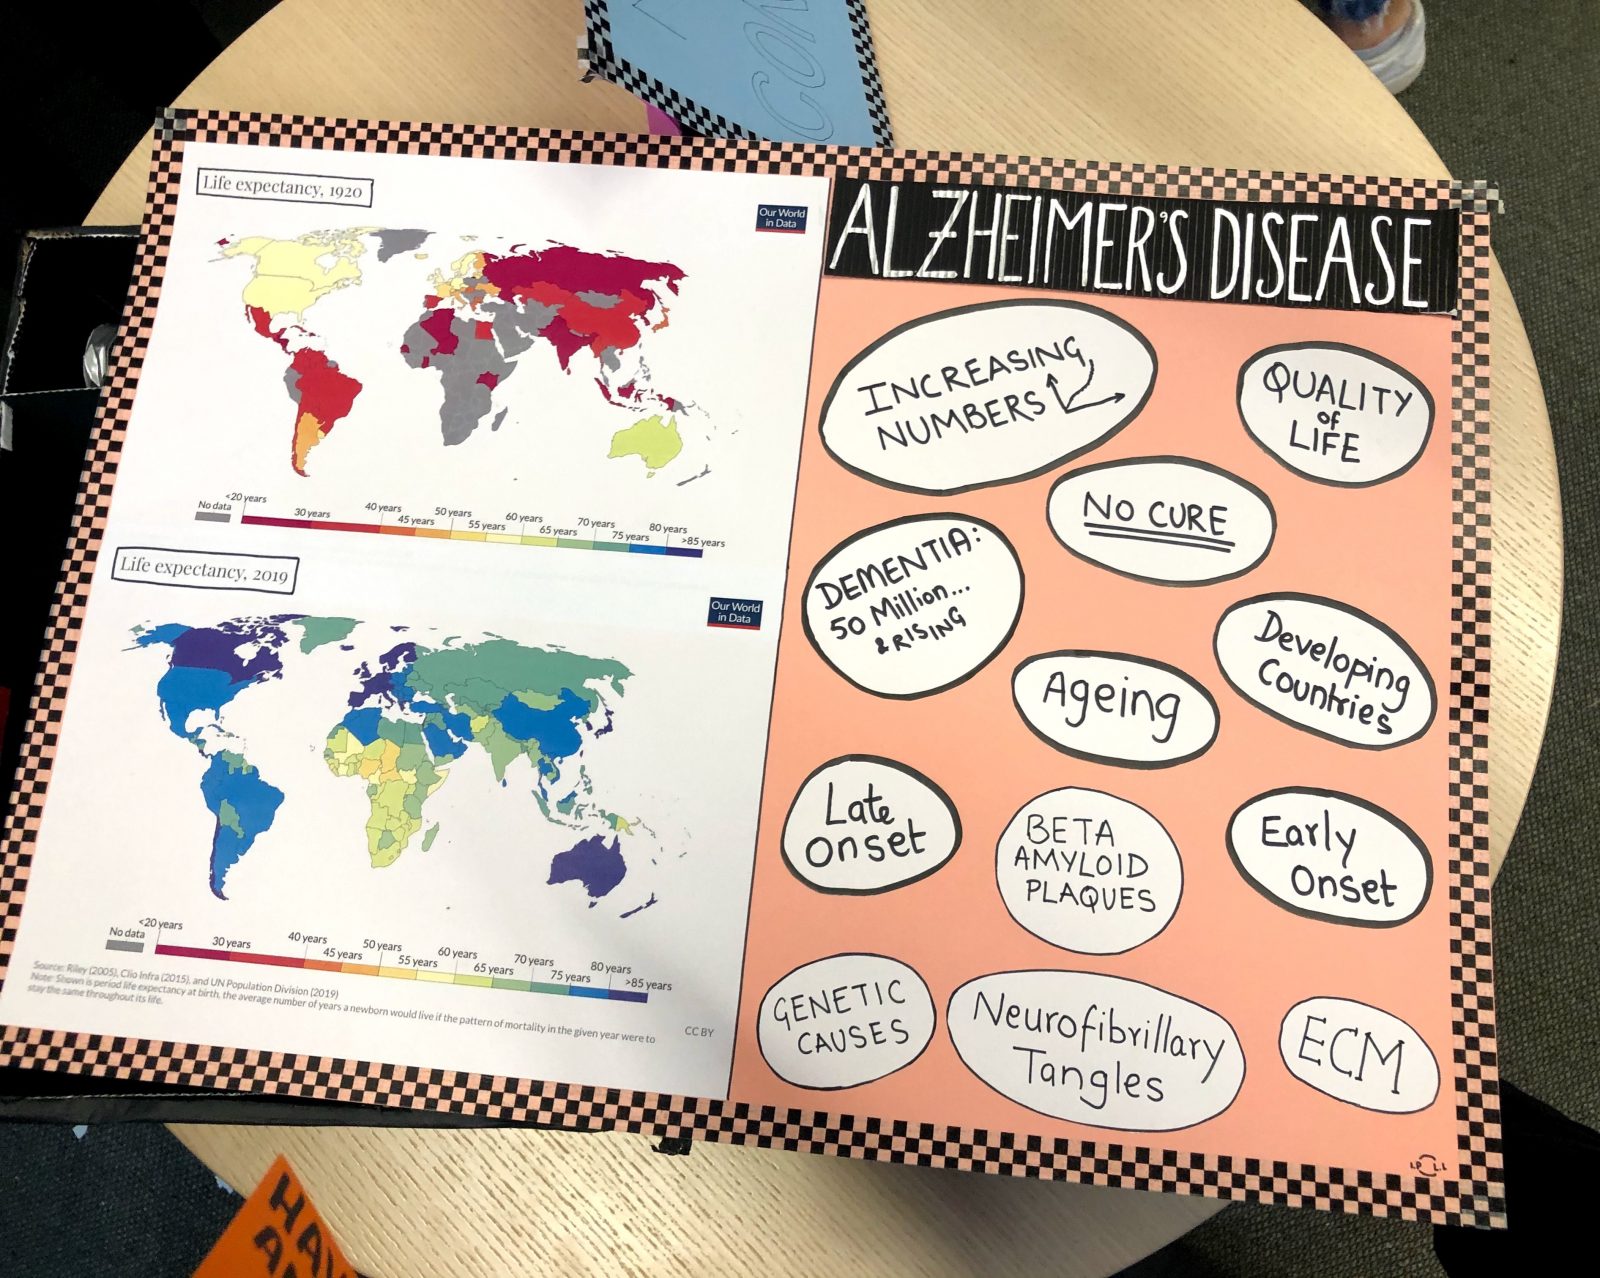 Life expectancy, 1920
Our World
in Data
No data
<20 years
30 years
40 years
45 years
50 years
55 years
60 years
65 years
70 years
75 years
80 years
>85 years
Life expectancy, 2019
Our World
in Data
No data
<20 years
30 years
40 years
45 years
50 years
55 years
60 years
65 years
70 years
75 years
80 years
>85 years
Source: Riley (2005), Clio Infra (2015), and UN Population Division (2019)
Note: Shown is period life expectancy at birth, the average number of years a newborn would live if the pattern of mortality in the given year were to
stay the same throughout its life.
CC BY
ALZHEIMER'S DISEASE
INCREASING
NUMBERS
QUALITY
of
LIFE
NO CURE
DEMENTIA:
50 Million...
& RISING
Developing
Countries
Ageing
Late
Onset
BETA
AMYLOID
PLAQUES
Early
Onset
GENETIC
CAUSES
Neurofibrillary
Tangles
ECM